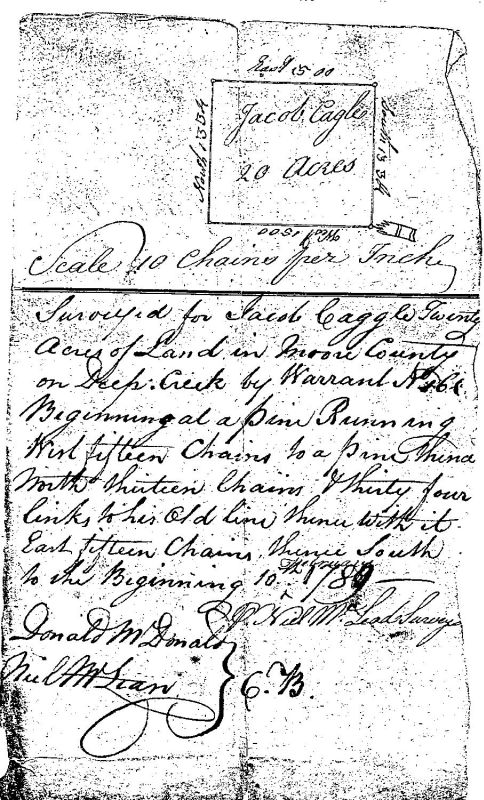 East 15 00
North 13 34
Jacob Cagle
20 Acres
South 13 34
West 1500
Scale 10 Chains per Inch
Surveyed for Jacob Caggle Twenty
Acres of Land in Moore County
on Deep Creek by Warrant No
Beginning at a pine Running
West fifteen Chains to a pine Thence
North thirteen Chains & thirty four
links to his Old line thence with it
East fifteen Chains thence South
to the Beginning 10th February 1789
Pr. Niel McLeod Survey
Donald McDonald
Niel McLean
C. B.